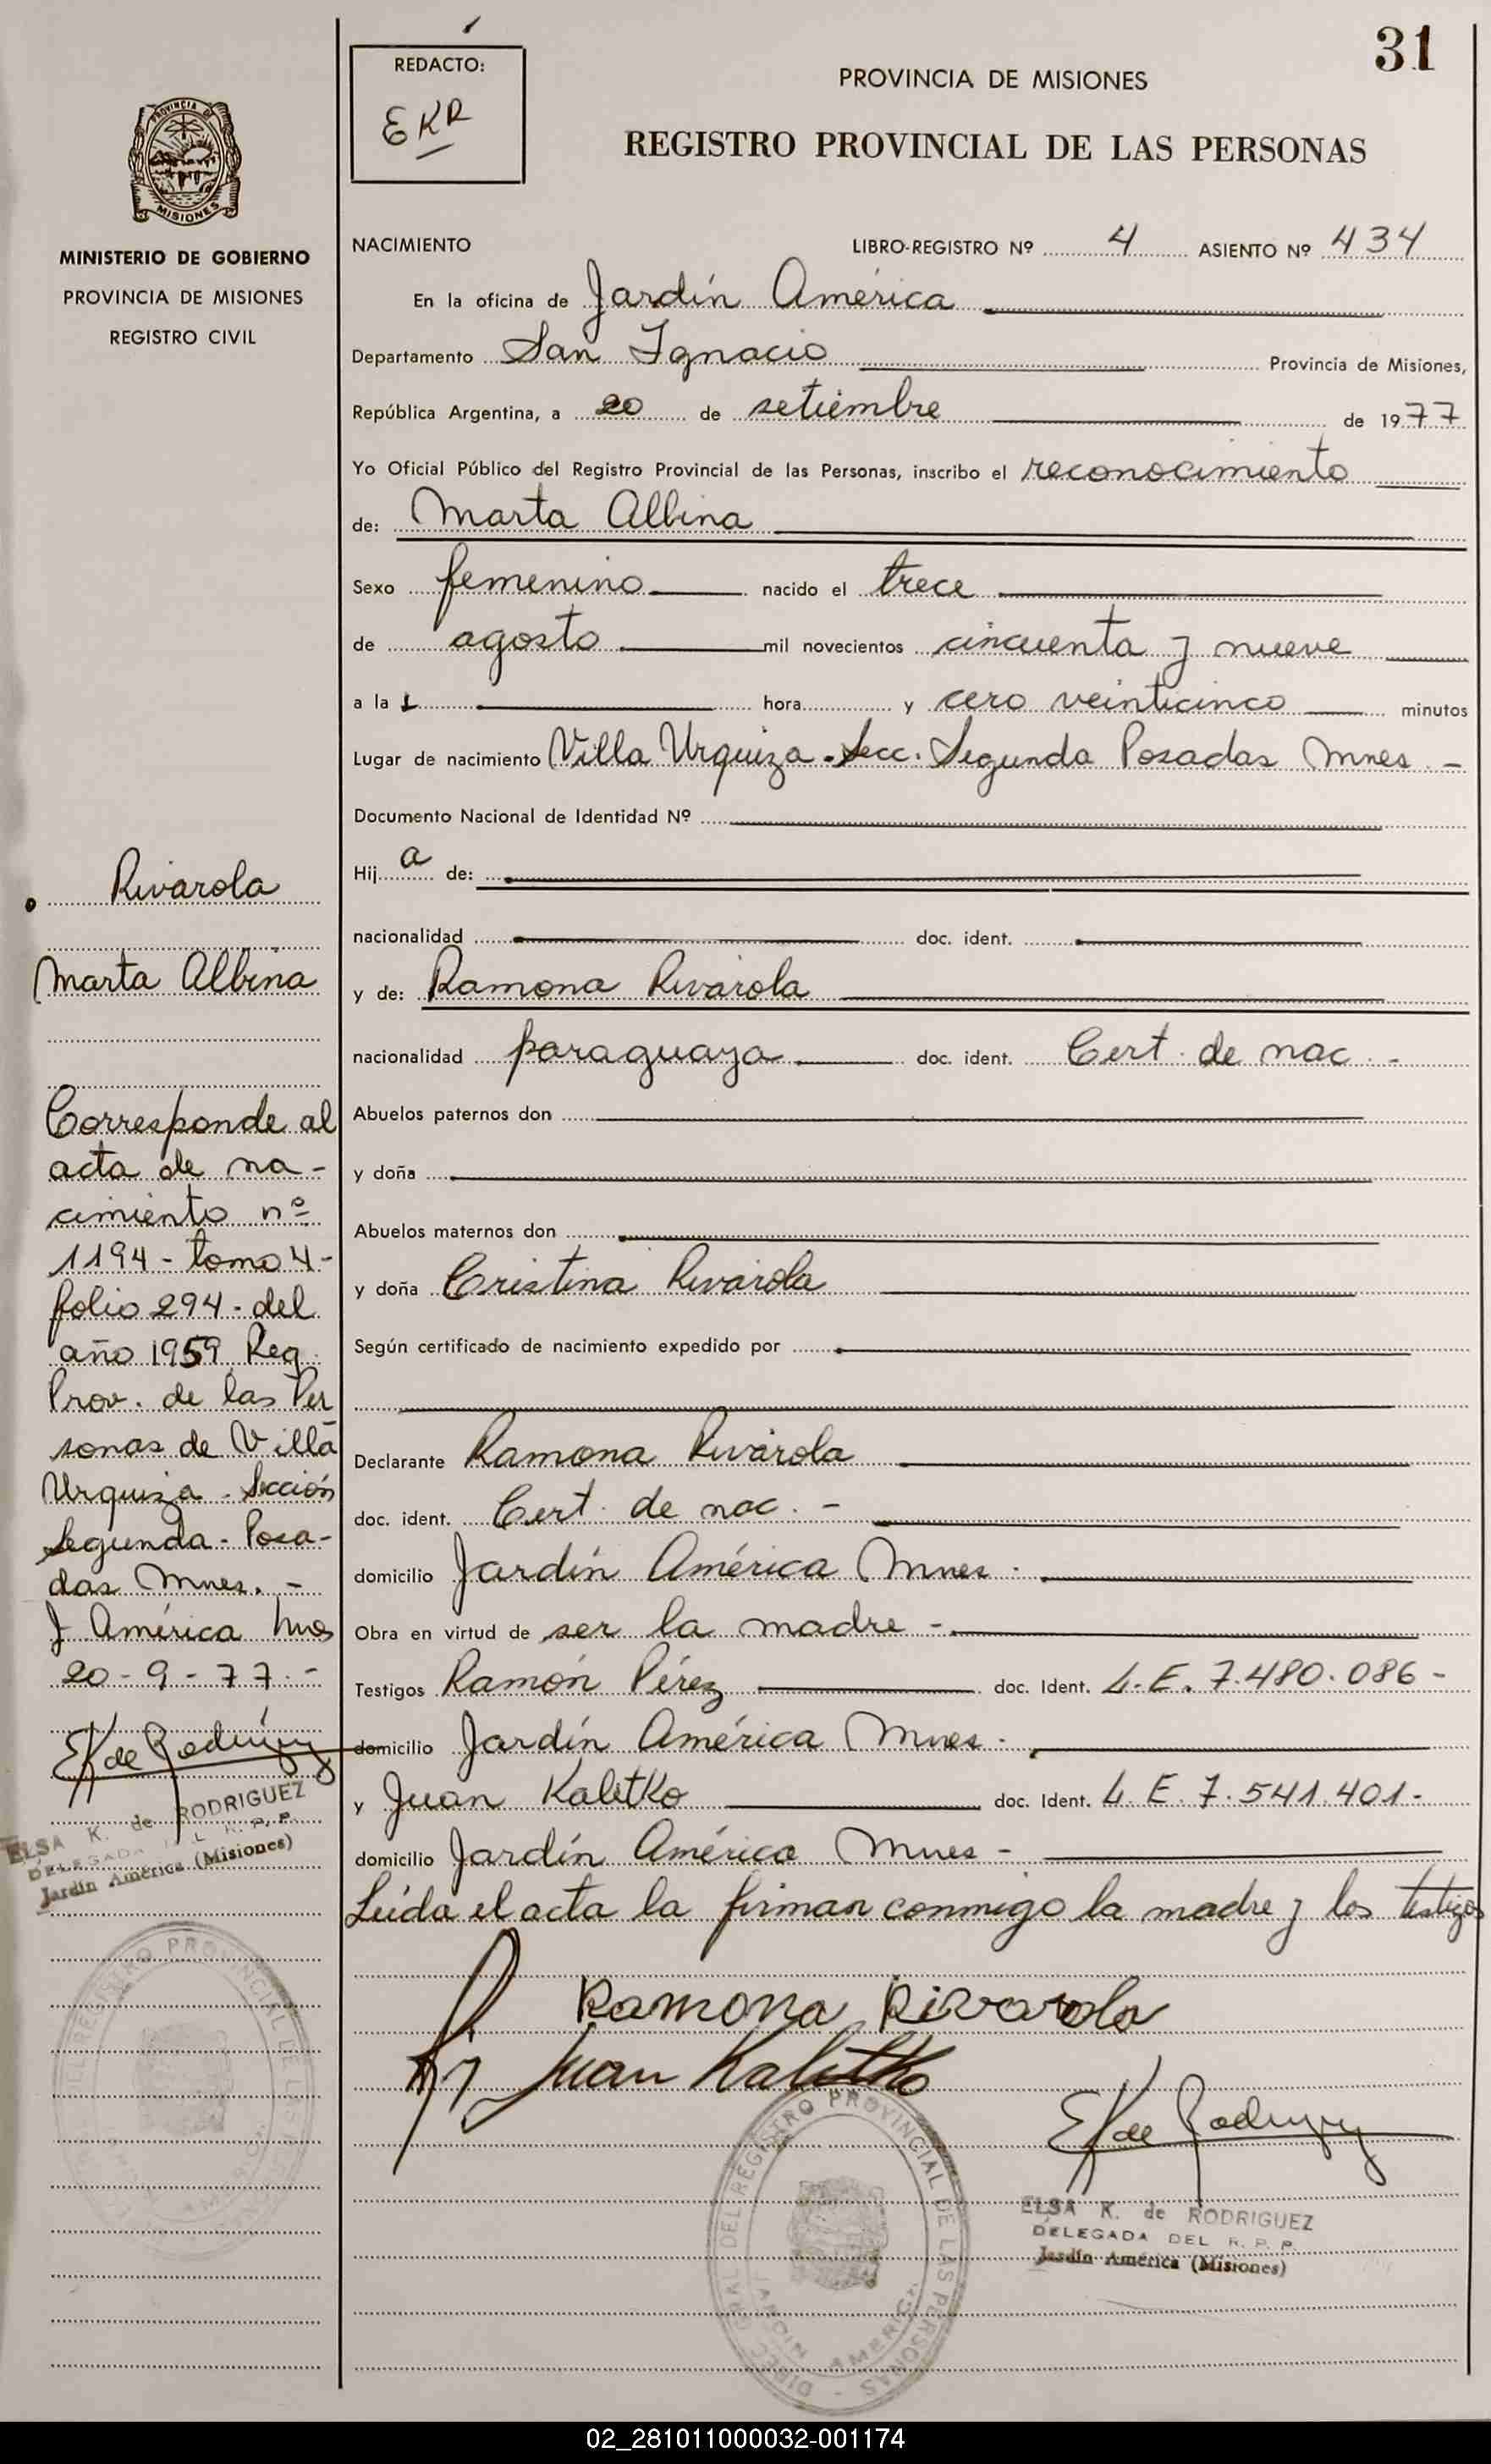 31
REDACTO:
EKR
PROVINCIA DE MISIONES
REGISTRO PROVINCIAL DE LAS PERSONAS
PROVINCIA DE
MISIONES
MINISTERIO DE GOBIERNO
PROVINCIA DE MISIONES
REGISTRO CIVIL
NACIMIENTO LIBRO-REGISTRO Nº 4 ASIENTO Nº 434
En la oficina de Jardín América
Departamento San Ignacio Provincia de Misiones,
República Argentina, a 20 de setiembre de 1977
Yo Oficial Público del Registro Provincial de las Personas, inscribo el reconocimiento
de: Marta Albina
Sexo femenino nacido el trece
de agosto mil novecientos cincuenta y nueve
a la 1 hora y cero veinticinco minutos
Lugar de nacimiento Villa Urquiza - Secc. Segunda Posadas Mnes. -
Documento Nacional de Identidad Nº
Hij a de:
nacionalidad doc. ident.
y de: Ramona Rivarola
nacionalidad paraguaya doc. ident. Cert. de nac. -
Abuelos paternos don
y doña
Abuelos maternos don
y doña Cristina Rivarola
Según certificado de nacimiento expedido por
Declarante Ramona Rivarola
doc. ident. Cert. de nac. -
domicilio Jardín América Mnes -
Obra en virtud de ser la madre -
Testigos Ramón Pérez doc. Ident. L.E. 7.480.086 -
domicilio Jardín América Mnes -
y Juan Kalitko doc. Ident. L.E. 7.541.401 -
domicilio Jardín América Mnes -
Leída el acta la firman conmigo la madre y los testigos
Ramona Rivarola
Juan Kalitko
EK de Rodriguez
ELSA K. de RODRIGUEZ
DELEGADA DEL R. P. P.
Jardín América (Misiones)
DIREC. GRAL. DEL REGISTRO PROVINCIAL DE LAS PERSONAS -
JARDIN AMERICA
Rivarola
Marta Albina
Corresponde al
acta de na-
cimiento nº
1194 - tomo 4 -
folio 294 - del
año 1959 Reg.
Prov. de las Per
sonas de Villa
Urquiza - Sección
Segunda - Posa-
das Mnes. -
J. América Mnes
20 - 9 - 77. -
EK de Rodriguez
ELSA K. de RODRIGUEZ
DELEGADA DEL R. P. P.
Jardín América (Misiones)
DEL REGISTRO PROVINCIAL DE LAS
02_281011000032-001174